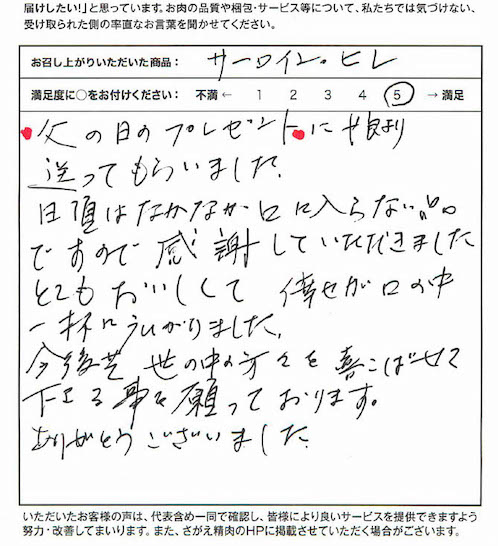 届けしたい!」と思っています。お肉の品質や梱包・サービス等について、私たちでは気づけない、
受け取られた側の率直なお言葉を聞かせてください。
お召し上がりいただいた商品: サーロイン・ヒレ
満足度に○をお付けください: 不満 ← 1 2 3 4 5 → 満足
父の日のプレゼントに娘より
送ってもらいました。
日頃はなかなか口に入らない品
ですので感謝していただきました
とてもおいしくて 倖せが口の中
一杯にひろがりました。
今後共 世の中の方々を喜こばせて
下さる事を願っております。
ありがとうございました
いただいたお客様の声は、代表含め一同で確認し、皆様により良いサービスを提供できますよう
努力・改善してまいります。また、さがえ精肉のHPに掲載させていただく場合がございます。